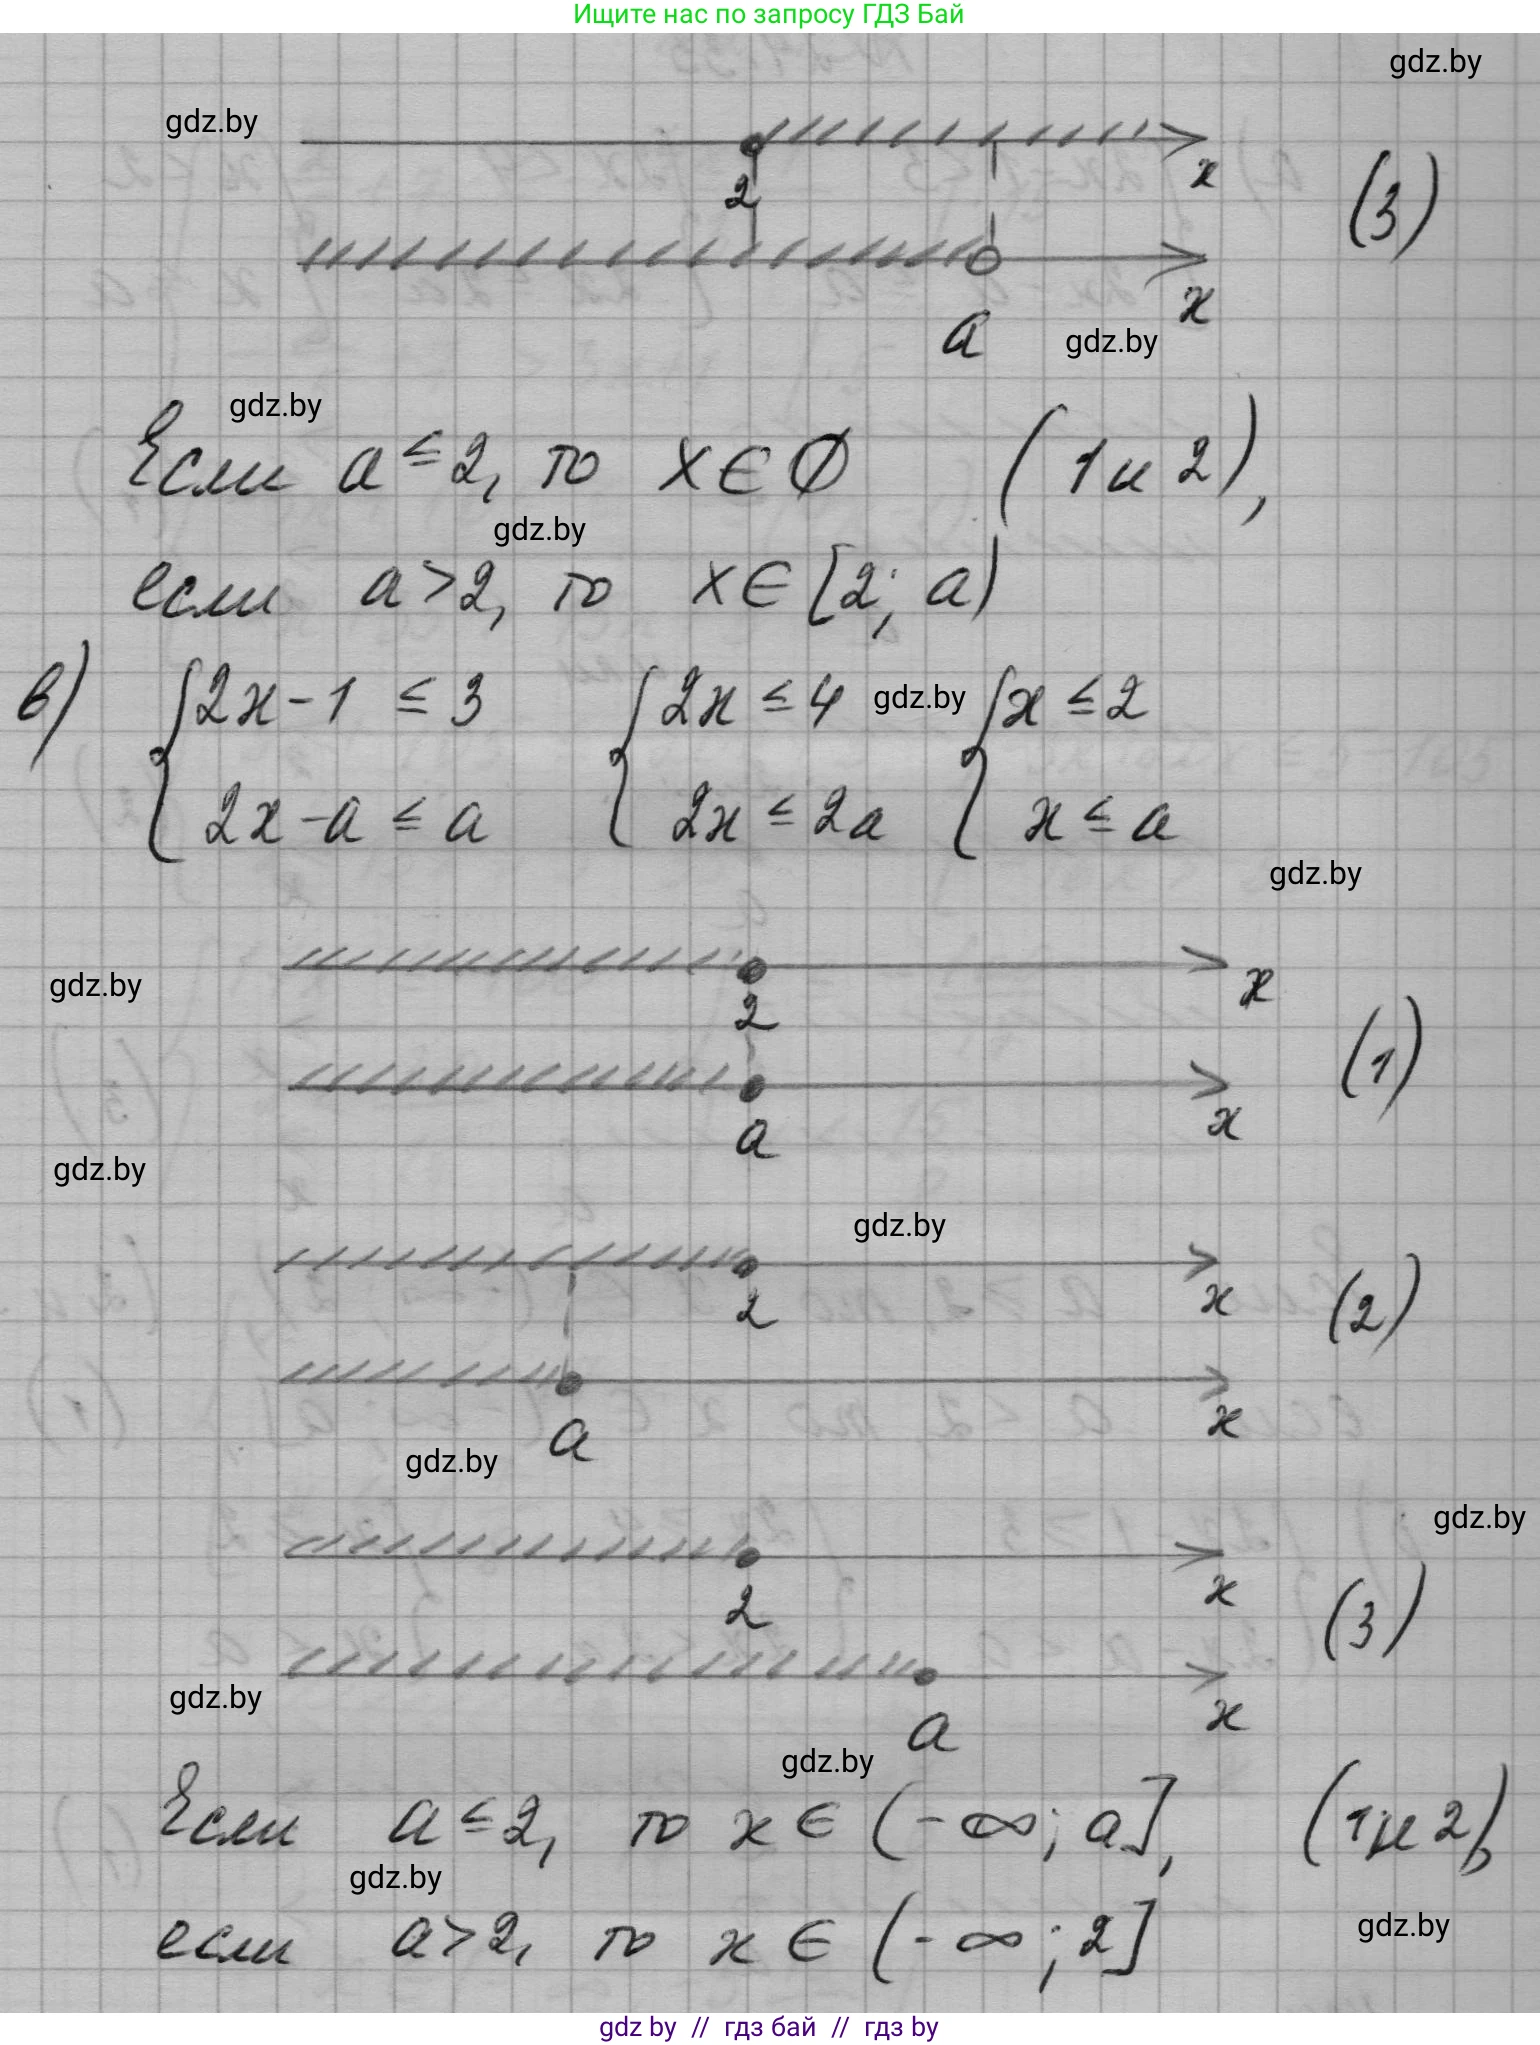 Ищите нас по запросу ГДЗ Бай
gdz.by
gdz.by
x
2
(3)
x
a
gdz.by
gdz.by
Если a ≤ 2, то x ∈ ∅ (1 и 2),
gdz.by
если a > 2, то x ∈ [2; a)
в) { 2x - 1 ≤ 3 { 2x ≤ 4 gdz.by { x ≤ 2
2x - a ≤ a 2x ≤ 2a x ≤ a
gdz.by
gdz.by
x
2
(1)
a x
gdz.by
gdz.by
2 x (2)
a x
gdz.by
gdz.by
2 x (3)
gdz.by
a x
gdz.by
Если a ≤ 2, то x ∈ (-∞; a], (1 и 2),
gdz.by
gdz.by
если a > 2, то x ∈ (-∞; 2]
gdz by // гдз бай // гдз by